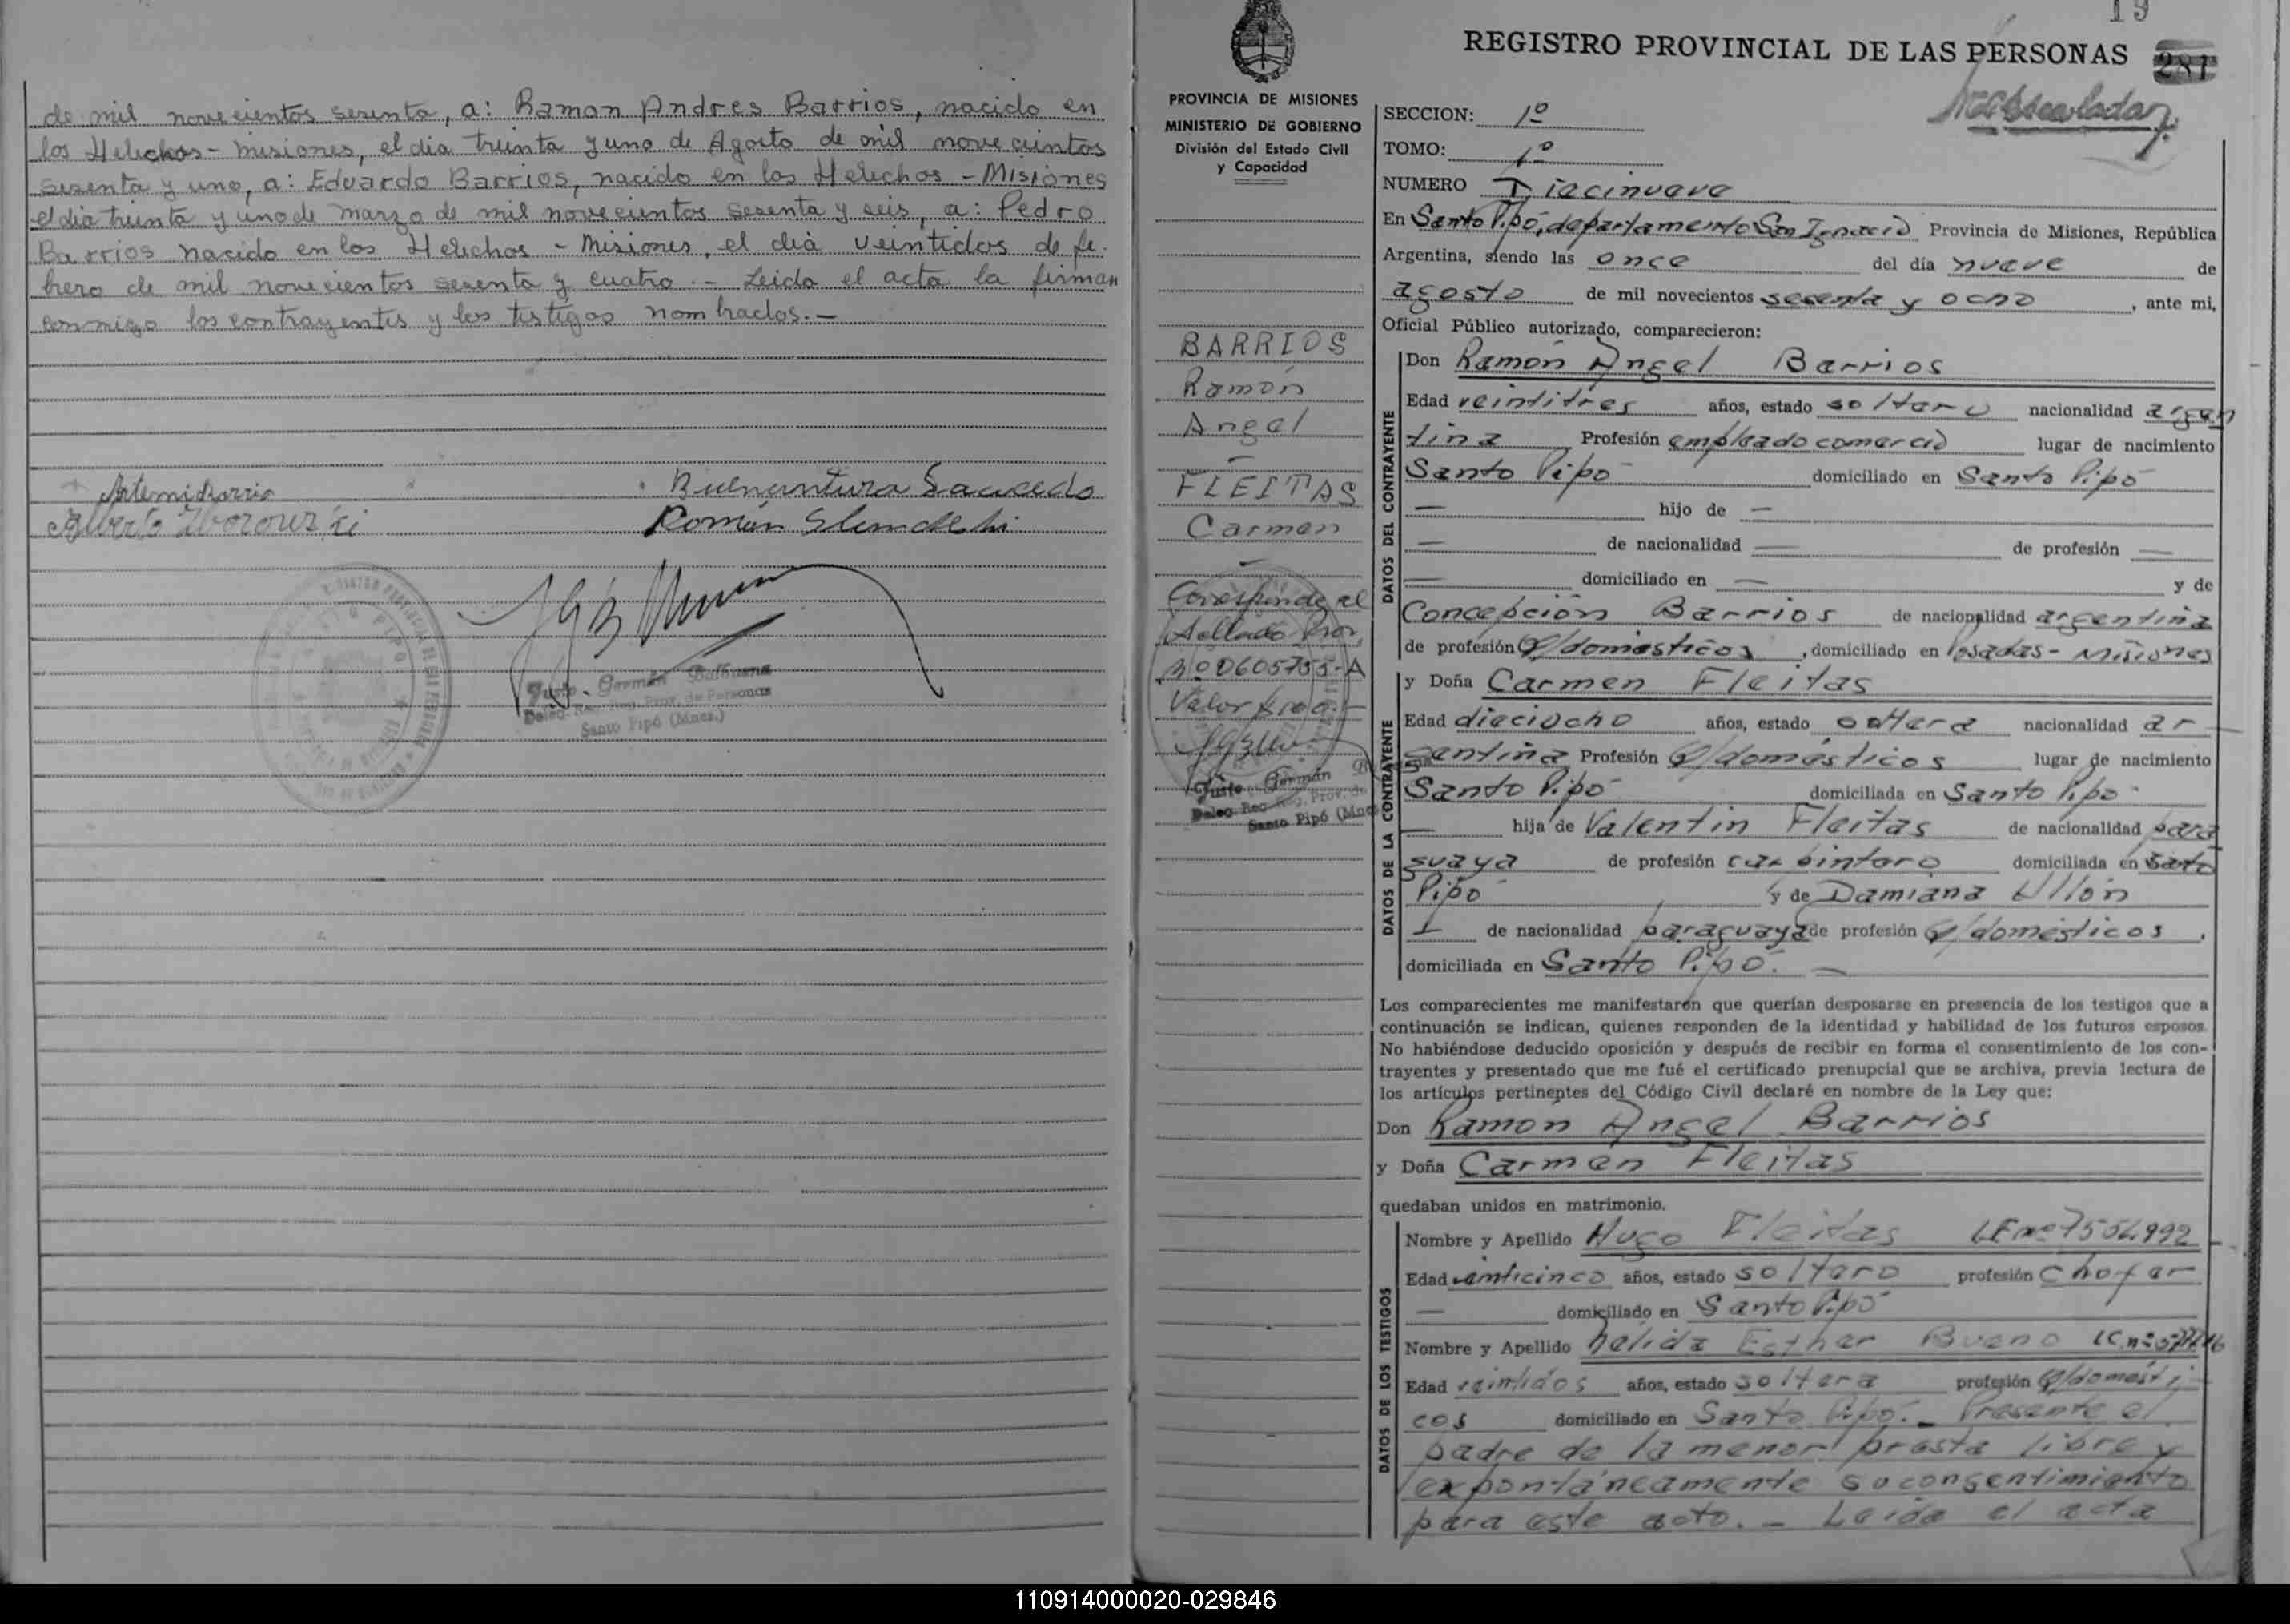 de mil novecientos sesenta, a: Ramon Andres Barrios, nacido en
los Helechos - Misiones, el dia treinta y uno de Agosto de mil novecientos
sesenta y uno, a: Eduardo Barrios, nacido en los Helechos - Misiones
el dia treinta y uno de marzo de mil novecientos sesenta y seis, a: Pedro
Barrios nacido en los Helechos - Misiones, el dia veintidos de fe-
brero de mil novecientos sesenta y cuatro. - Leida el acta la firman
conmigo los contrayentes y los testigos nombrados. -
Buenaventura Saucedo
Alberto
Román
Justo - Germán Balbuena
Deleg. Rec. Reg. Prov. de Personas
Santo Pipó (Mnes.)
19
REGISTRO PROVINCIAL DE LAS PERSONAS
281
PROVINCIA DE MISIONES
MINISTERIO DE GOBIERNO
División del Estado Civil
y Capacidad
BARRIOS
Ramón
Angel
-
FLEITAS
Carmen
-
Corresponde al
Sellado Prov.
Nº 0605755-A
Valor $100.-
Justo Germán
Deleg. Rec. Reg. Prov. de
Santo Pipó (Mnes
SECCION: 1º
TOMO: 1º
NUMERO Diecinueve
En Santo Pipó, departamento San Ignacio Provincia de Misiones, República
Argentina, siendo las once del día nueve de
agosto de mil novecientos sesenta y ocho, ante mi,
Oficial Público autorizado, comparecieron:
DATOS DEL CONTRAYENTE
Don Ramón Angel Barrios
Edad veintitres años, estado soltero nacionalidad argen
tina Profesión empleado comercio lugar de nacimiento
Santo Pipó domiciliado en Santo Pipó
— hijo de —
— de nacionalidad — de profesión —
— domiciliado en — y de
Concepción Barrios de nacionalidad argentina
de profesión Q/domésticos, domiciliado en Posadas - Misiones
DATOS DE LA CONTRAYENTE
y Doña Carmen Fleitas
Edad dieciocho años, estado soltera nacionalidad ar
gentina Profesión Q/domésticos lugar de nacimiento
Santo Pipó domiciliada en Santo Pipó
— hija de Valentin Fleitas de nacionalidad para
guaya de profesión carpintero domiciliada en Santo
Pipó y de Damiana Ullón
de nacionalidad paraguaya de profesión Q/domésticos,
domiciliada en Santo Pipó. —
Los comparecientes me manifestaron que querían desposarse en presencia de los testigos que a
continuación se indican, quienes responden de la identidad y habilidad de los futuros esposos.
No habiéndose deducido oposición y después de recibir en forma el consentimiento de los con-
trayentes y presentado que me fué el certificado prenupcial que se archiva, previa lectura de
los artículos pertinentes del Código Civil declaré en nombre de la Ley que:
Don Ramón Angel Barrios
y Doña Carmen Fleitas
quedaban unidos en matrimonio.
DATOS DE LOS TESTIGOS
Nombre y Apellido Hugo Fleitas LE nº 7554992
Edad veinticinco años, estado soltero profesión chofer
— domiciliado en Santo Pipó
Nombre y Apellido Nélida Esther Bueno LC nº
Edad veintidos años, estado soltera profesión Q/domésti
cos domiciliado en Santo Pipó. - Presente el
padre de la menor presta libre y
expontáneamente su consentimiento
para este acto. - Leida el acta
110914000020-029846